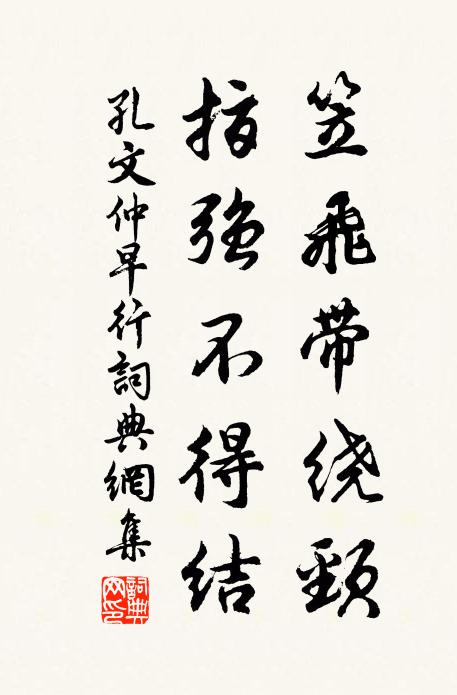 笠飛带绕頸
指强不得结
孔文仲早行詞典網集
詞典网印